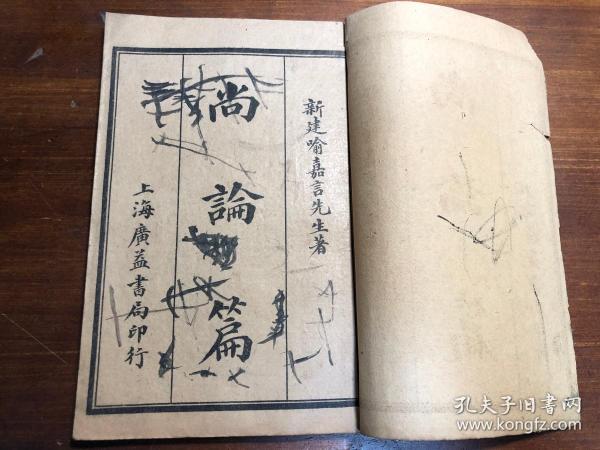 新建喻嘉言先生著
尚論篇
上海廣益書局印行
孔夫子旧書网
www.kongfz.com